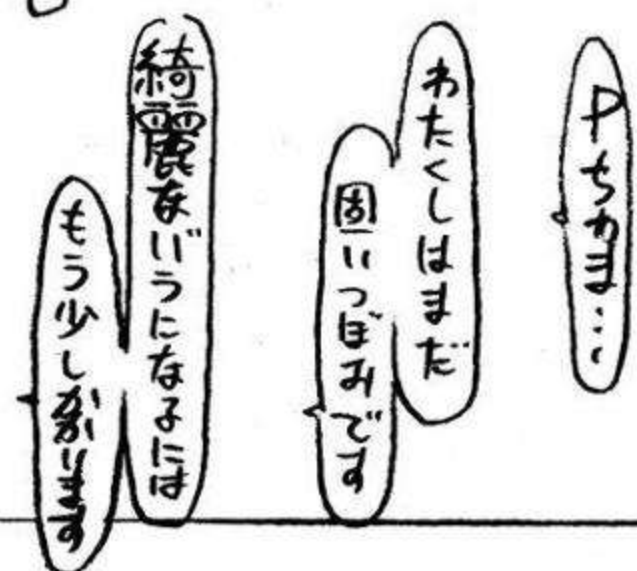 Pちゃま…
わたくしはまだ
固いつぼみです
綺麗なばらになるには
もう少しかかります